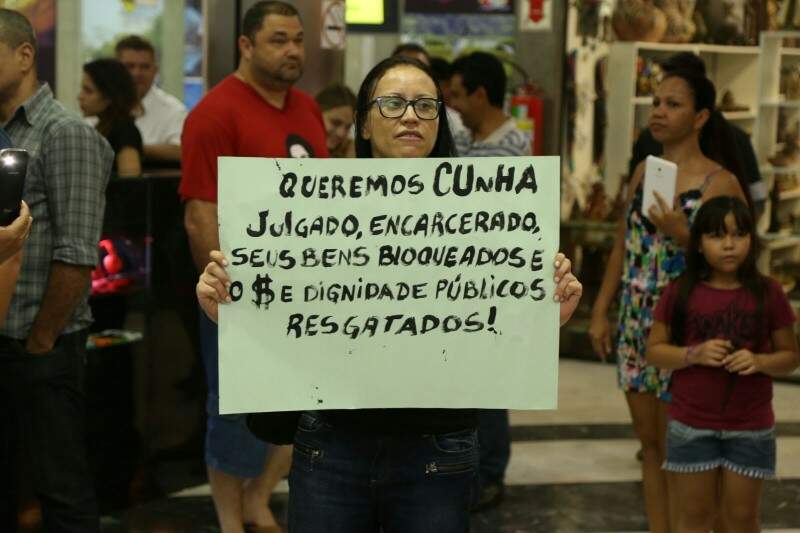 QUEREMOS CUNHA
JULGADO, ENCARCERADO,
SEUS BENS BLOQUEADOS E
O $ E DIGNIDADE PÚBLICOS
RESGATADOS!